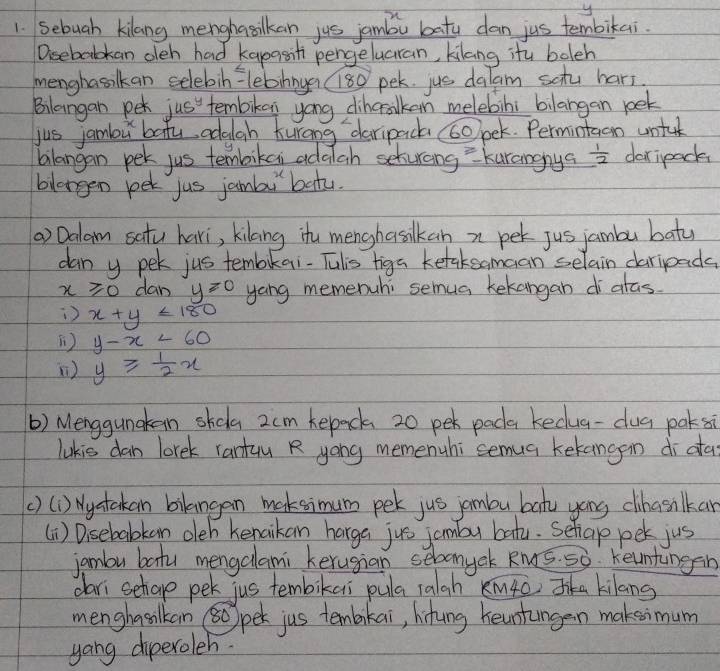 x y
1. Sebuah kilang menghasilkan jus jambu batu dan jus tembikai.
Disebabkan oleh had kapasiti pengeluaran, kilang itu boleh
menghasilkan selebih-lebihnya 180 pek jus dalam satu hari.
Bilangan pek jus y tembikai yang dihasilkan melebihi bilangan pek
jus jambu x batu adalah kurang < daripada 60 pek. Permintaan untuk
bilangan pek jus tembikai adalah sekurang-kurangnya 1/2 daripada
bilangan pek jus jambu x batu.
a) Dalam satu hari, kilang itu menghasilkan x pek jus jambu batu
dan y pek jus tembikai. Tulis tiga ketaksamaan selain daripada
x ≥ 0 dan y ≥ 0 yang memenuhi semua kekangan di atas.
i) x + y ≤ 180
ii) y - x < 60
iii) y ≥ 1/2 x
b) Menggunakan skala 2cm kepada 20 pek pada kedua-dua paksi
lukis dan lorek rantau R yang memenuhi semua kekangan di atas
c) (i) Nyatakan bilangan maksimum pek jus jambu batu yang dihasilkan
(ii) Disebabkan oleh kenaikan harga jus jambu batu. Setiap pek jus
jambu batu mengalami kerugian sebanyak RM5.50. Keuntungan
dari setiap pek jus tembikai pula ialah RM40. Jika kilang
menghasilkan 80 pek jus tembikai, hitung keuntungan maksimum
yang diperoleh.